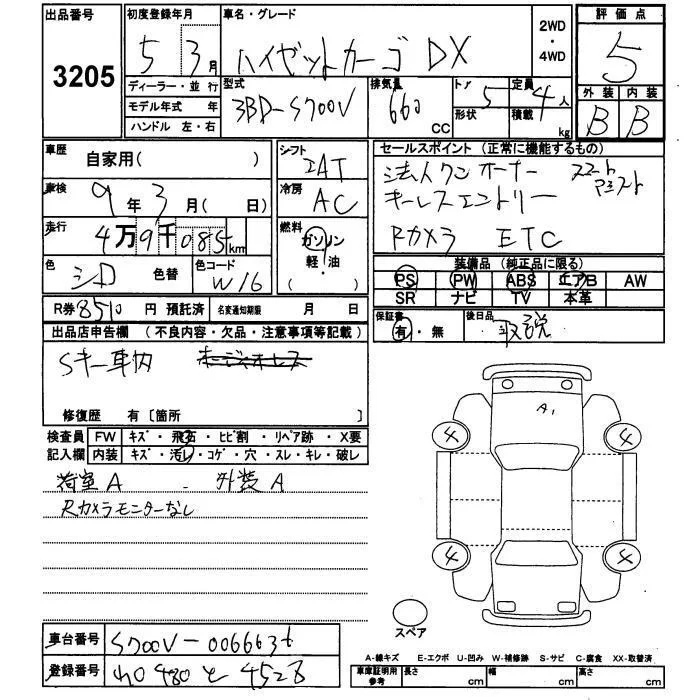 出品番号 3205
初度登録年月 5年 3月
車名・グレード ハイゼットカーゴ DX
2WD・4WD
評価点 5
外装 B 内装 B
ディーラー・並行
モデル年式 年
ハンドル 左・右
型式 3BD-S700V
排気量 660 CC
ドア 5
形状
定員 4人
積載 kg
車歴 自家用( )
シフト IAT
セールスポイント (正常に機能するもの)
法人ワンオーナー スマート
キーレスエントリー アシスト
Rカメラ ETC
車検 9年 3月( 日)
冷房 AC
走行 4万9千085km
燃料 ガソリン
軽・油
( )
色 シロ 色替
色コード W16
装備品 (純正品に限る)
PS PW ABS エアB AW
SR ナビ TV 本革
R券 8510 円 預託済 名変通知期限 月 日
保証書 有・無
後日品 取説
出品店申告欄 (不良内容・欠品・注意事項等記載)
Sキー車内
修復歴 有 [箇所 ]
検査員記入欄
FW キズ・飛石・ヒビ割・リペア跡・X要
内装 キズ・汚れ・コゲ・穴・スレ・キレ・破レ
荷室A ・ 外装A
Rカメラモニターなし
A1
4 4
4 4
スペア
車台番号 S700V-0066636
登録番号 480 と 4528
A-線キズ E-エクボ U-凹み W-補修跡 S-サビ C-腐食 XX-取替済
車庫証明用参考 長さ cm 幅 cm 高さ cm